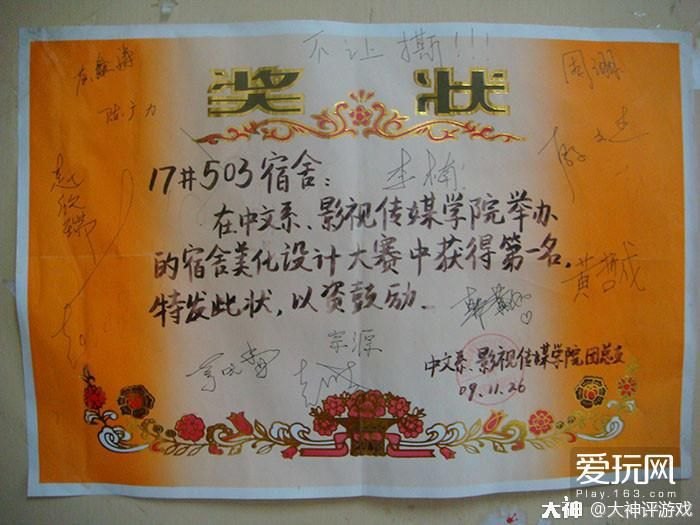 不让撕!!!
奖状
周珊
陈广力
17#503宿舍:
李楠
在中文系、影视传媒学院举办
的宿舍美化设计大赛中获得第一名,
特发此状,以资鼓励.
黄哲成
宗源
中文系、影视传媒学院团总支
09.11.26
爱玩网
Play.163.com
大神 @大神评游戏